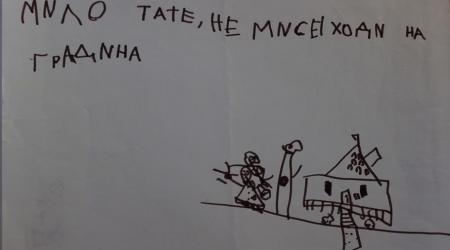 МNЛО ТАТЕ, НЕ МNСЕ ХОДN НА
ГРАДNНА